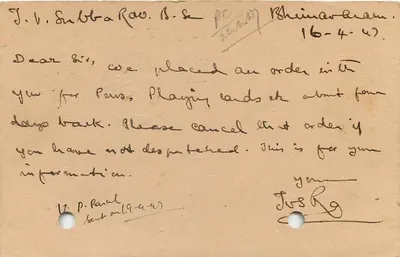 T. V. Subba Rao. B.Sc
Bhimavaram.
16-4-47.
Dear Sir, we placed an order with
you for Pens, Playing cards etc about four
days back. Please cancel that order if
you have not despatched. This is for your
information.
yours
TVS Rao
V. P. Parcel
sent on 19-4-47